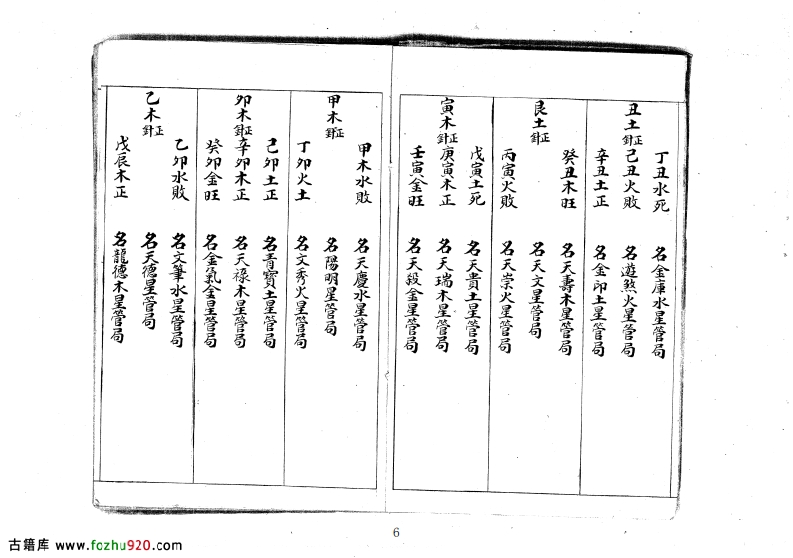 丁丑水死 名金庫水星管局
丑土正針己丑火敗 名遊煞火星管局
辛丑土正 名金印土星管局
癸丑木旺 名天壽木星管局
艮土正針 名天文星管局
丙寅火敗 名天崇火星管局
戊寅土死 名天貴土星管局
寅木正針庚寅木正 名天瑞木星管局
壬寅金旺 名天殺金星管局
甲木水敗 名天慶水星管局
甲木正針 名陽明星管局
丁卯火土 名文秀火星管局
己卯土正 名青寶土星管局
卯木正針辛卯木正 名天祿木星管局
癸卯金旺 名金氣金星管局
乙卯水敗 名文筆水星管局
乙木正針 名天德星管局
戊辰木正 名龍德木星管局
6
古籍库 www.fozhu920.com